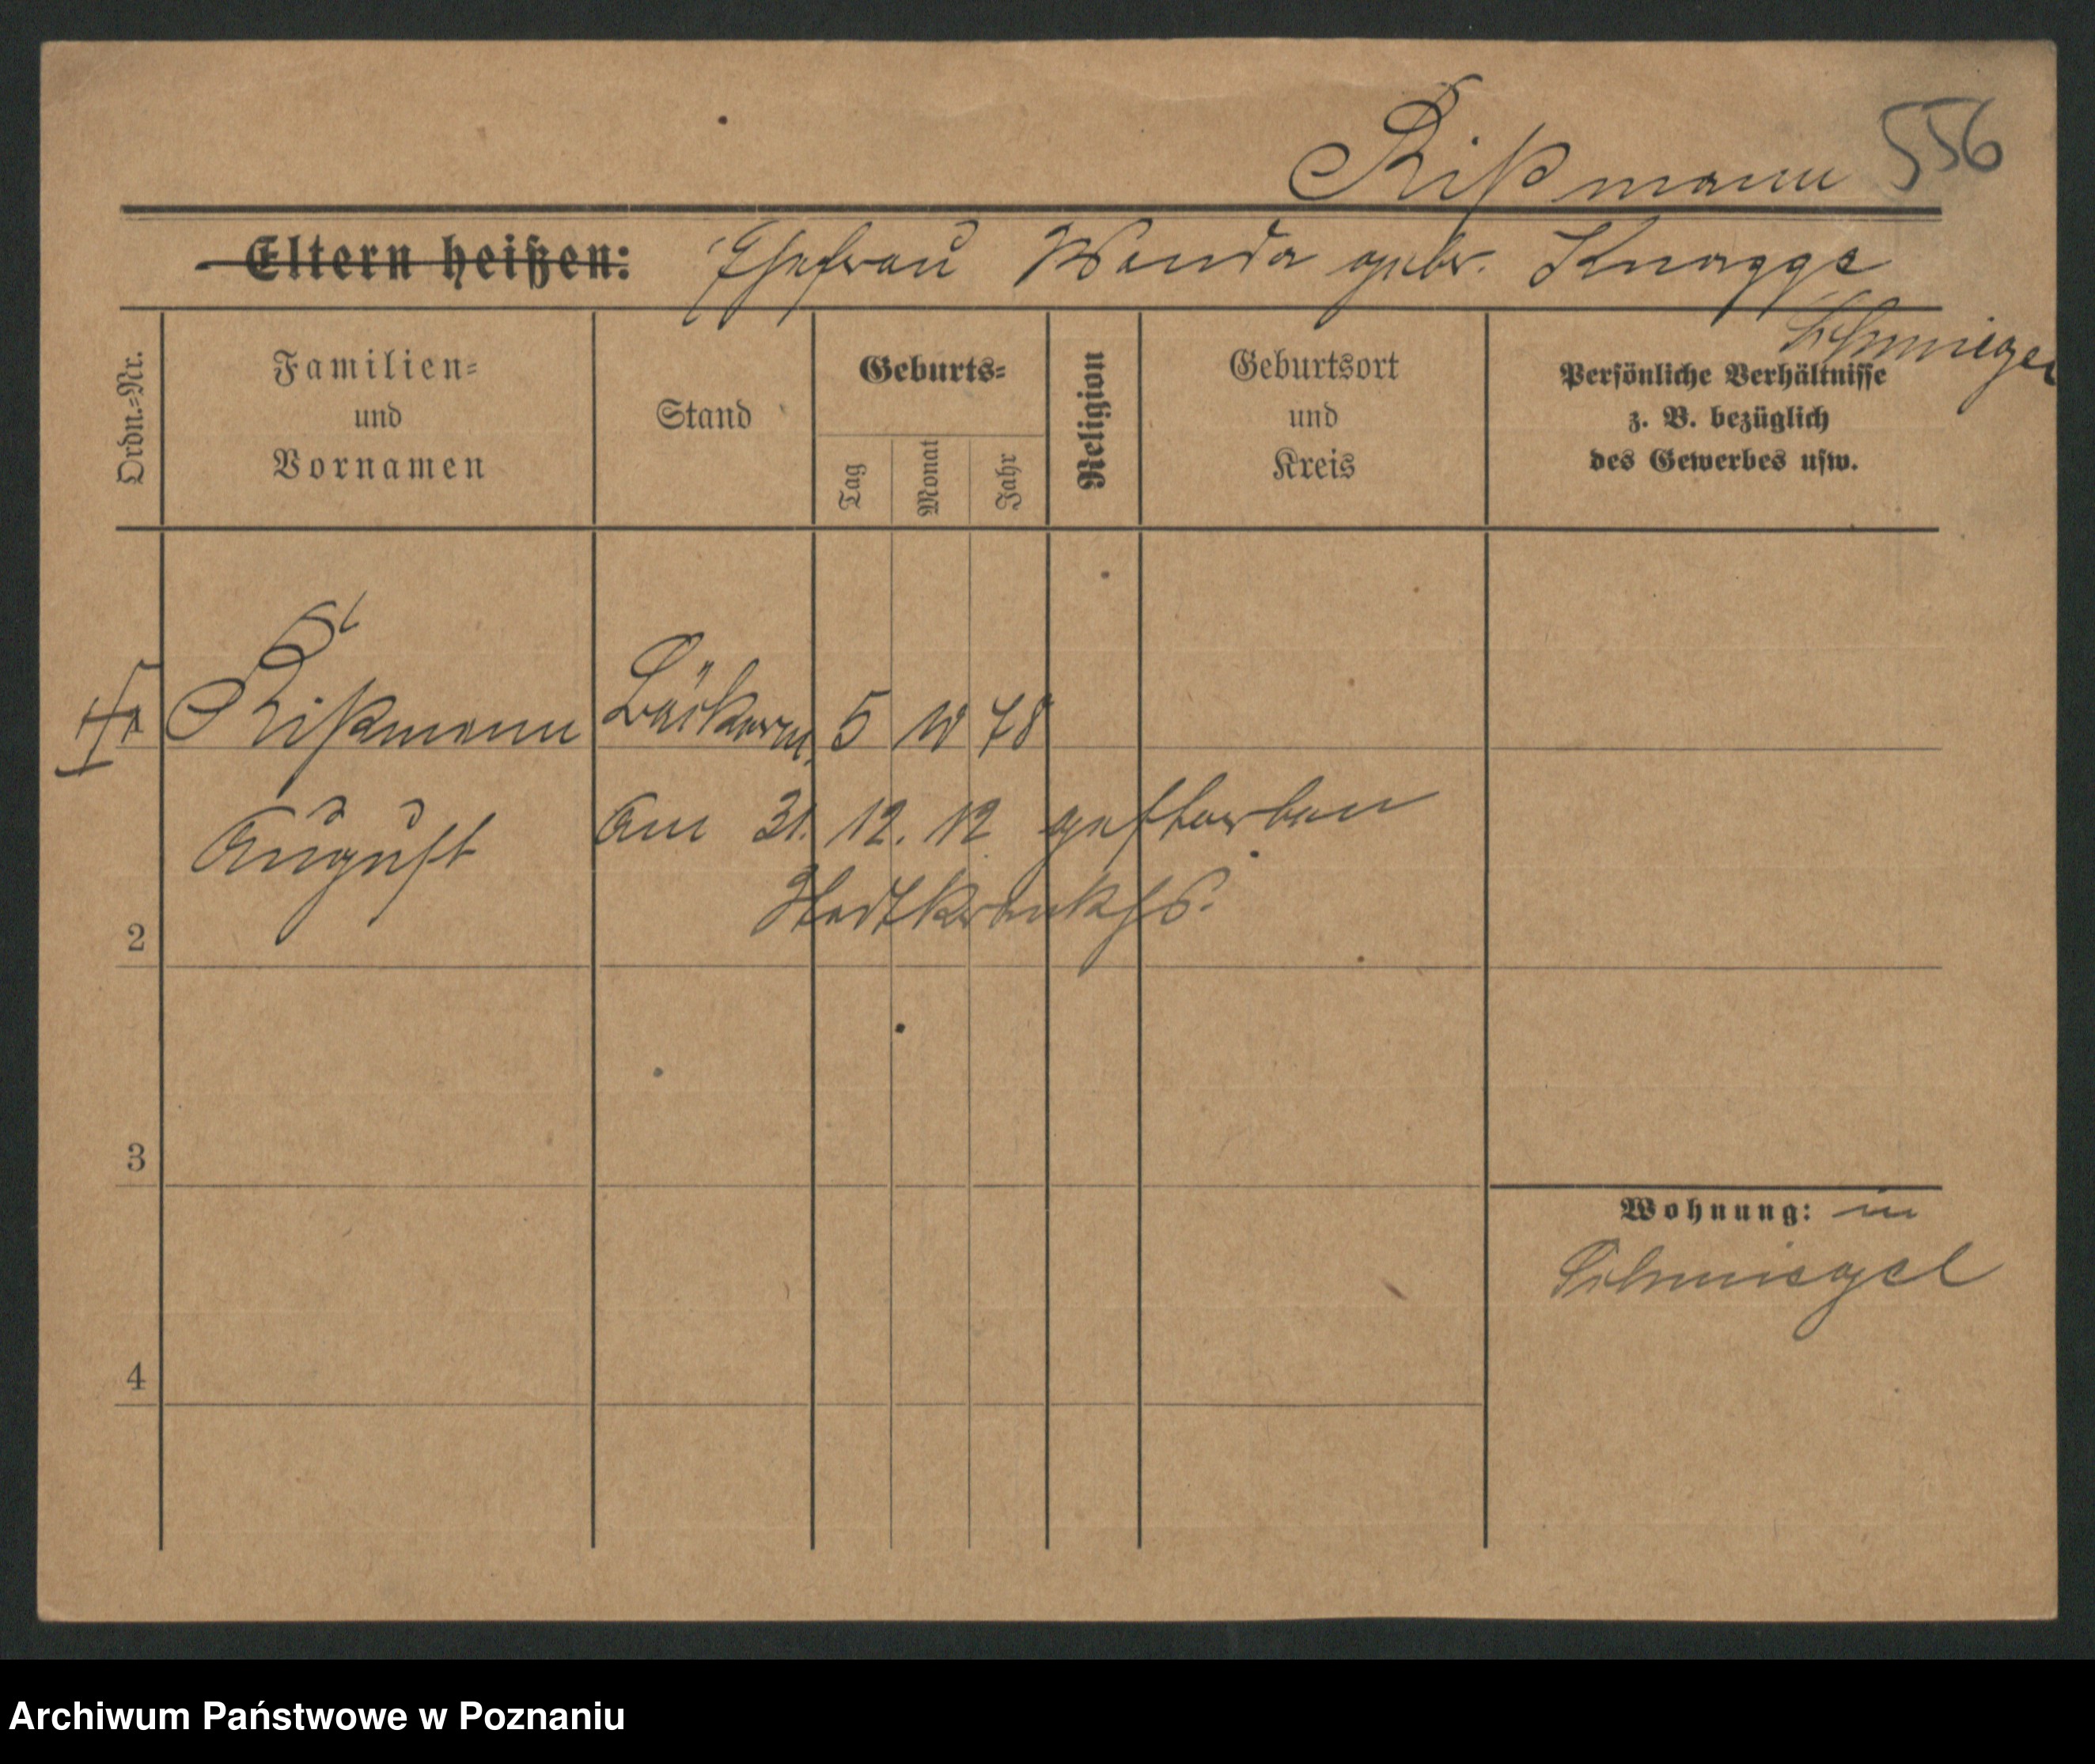 Rißmann 556
Eltern heißen: Ehefrau Wanda gebr. Knagge
Schmiegel
Ordn.=Nr.
Familien=
und
Vornamen
Stand
Geburts=
Tag
Monat
Jahr
Religion
Geburtsort
und
Kreis
Persönliche Verhältnisse
z. B. bezüglich
des Gewerbes usw.
Rißmann Bäckerm. 5 10 78
August am 31. 12. 12 gestorben
Stadtkrankhs.
2
3
4
Wohnung: in
Schmiegel
Archiwum Państwowe w Poznaniu